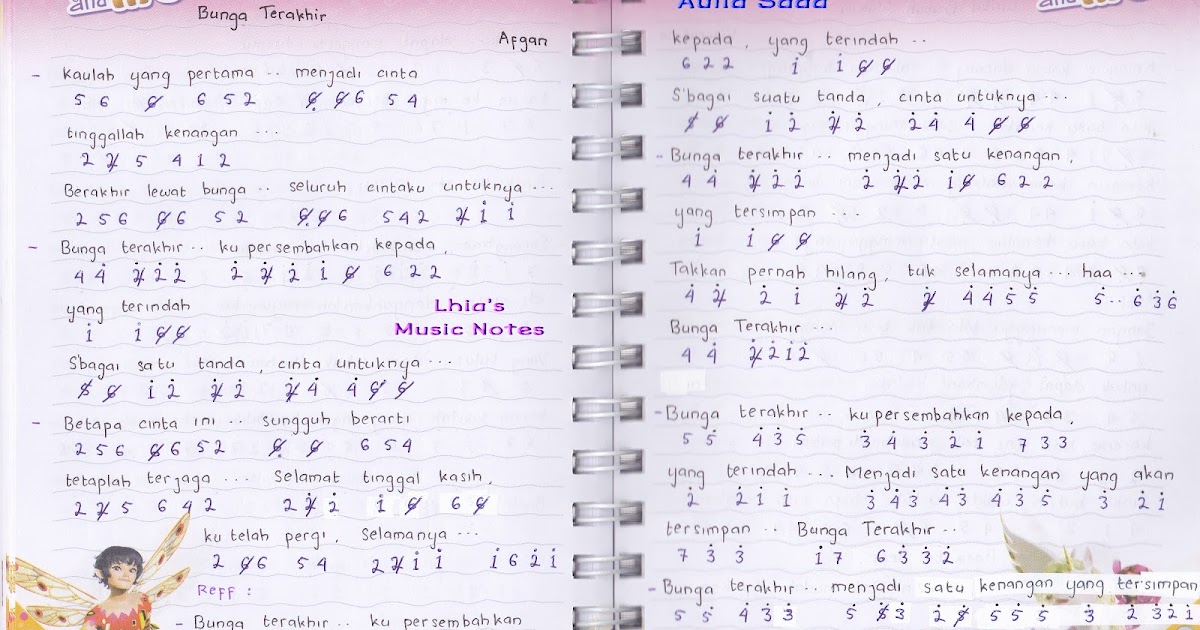 Bunga Terakhir
Afgan
- Kaulah yang pertama .. menjadi cinta
5 6 6 6 5 2 6 6 6 5 4
tinggallah kenangan ...
2 2 5 4 1 2
Berakhir lewat bunga .. seluruh cintaku untuknya ...
2 5 6 6 6 5 2 6 6 6 5 4 2 2 1 1
- Bunga terakhir .. ku persembahkan kepada,
4 4 2 2 2 2 2 2 1 6 6 2 2
yang terindah
1 1 6 6
S'bagai satu tanda, cinta untuknya ...
6 6 1 2 2 2 2 4 4 6 6
- Betapa cinta ini .. sungguh berarti
2 5 6 6 6 5 2 6 6 6 5 4
tetaplah terjaga ... Selamat tinggal kasih,
2 2 5 6 4 2 2 2 2 1 6 6 6
ku telah pergi, Selamanya ...
2 6 6 5 4 2 2 1 1 1 6 2 1
Reff :
- Bunga terakhir .. ku persembahkan
Lhia's
Music Notes
Aulia Sada
kepada, yang terindah ..
6 2 2 1 1 6 6
S'bagai suatu tanda, cinta untuknya ...
6 6 1 2 2 2 2 4 4 6 6
- Bunga terakhir .. menjadi satu kenangan,
4 4 2 2 2 2 2 2 1 6 6 2 2
yang tersimpan ...
1 1 6 6
Takkan pernah hilang, tuk selamanya ... haa ...
4 2 2 1 2 2 2 4 4 5 5 5 .. 6 3 6
Bunga Terakhir ...
4 4 2 2 1 2
- Bunga terakhir .. ku persembahkan kepada,
5 5 4 3 5 3 4 3 2 1 7 3 3
yang terindah ... Menjadi satu kenangan yang akan
2 2 1 1 3 4 3 4 3 4 3 5 3 2 1
tersimpan .. Bunga Terakhir ..
7 3 3 1 7 6 3 3 2
- Bunga terakhir .. menjadi satu kenangan yang tersimpan
5 5 4 3 3 5 5 3 2 6 5 5 5 3 2 3 2 1